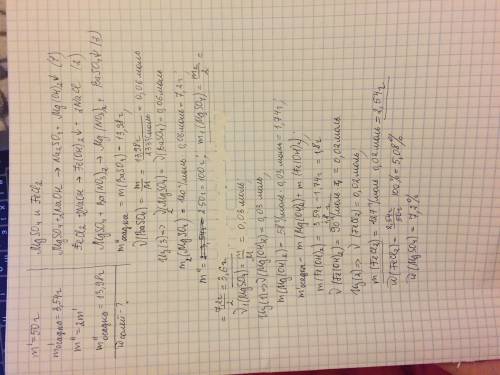 m'=50г
m'осадка=3,54г
m''=2m'
m''осадка=13,98г
ω солей-?
MgSO₄ и FeCl₂
MgSO₄+2NaOH → Na₂SO₄ + Mg(OH)₂↓ (1)
FeCl₂+2NaOH → Fe(OH)₂↓ + 2NaCl (2)
MgSO₄ + Ba(NO₃)₂ → Mg(NO₃)₂ + BaSO₄↓ (3)
m''осадка = m(BaSO₄) = 13,98г,
ν(BaSO₄) = m/M = 13,98г/233г/моль = 0,06моль
Ур(3) => ν(MgSO₄) = ν(BaSO₄) = 0,06моль
m₂(MgSO₄) = 120г/моль · 0,06моль = 7,2г
m'' = 2·50г=100г; m₁(MgSO₄) = m₂/2 =
= 7,2г/2 = 3,6г
ν₁(MgSO₄) = m/M = 0,03моль
Ур(1) => ν(Mg(OH)₂) = 0,03моль
m(Mg(OH)₂) = 58г/моль · 0,03моль = 1,74г,
m'осадка = m(Mg(OH)₂) + m(Fe(OH)₂)
m(Fe(OH)₂) = 3,54г - 1,74г = 1,8г
ν(Fe(OH)₂) = 1,8г/90г/моль = 0,02моль
Ур(2) => ν(FeCl₂) = 0,02моль
m(FeCl₂) = 127г/моль · 0,02моль = 2,54г
ω(FeCl₂) = 2,54г/50г · 100% = 5,08%
ω(MgSO₄) = 7,2%